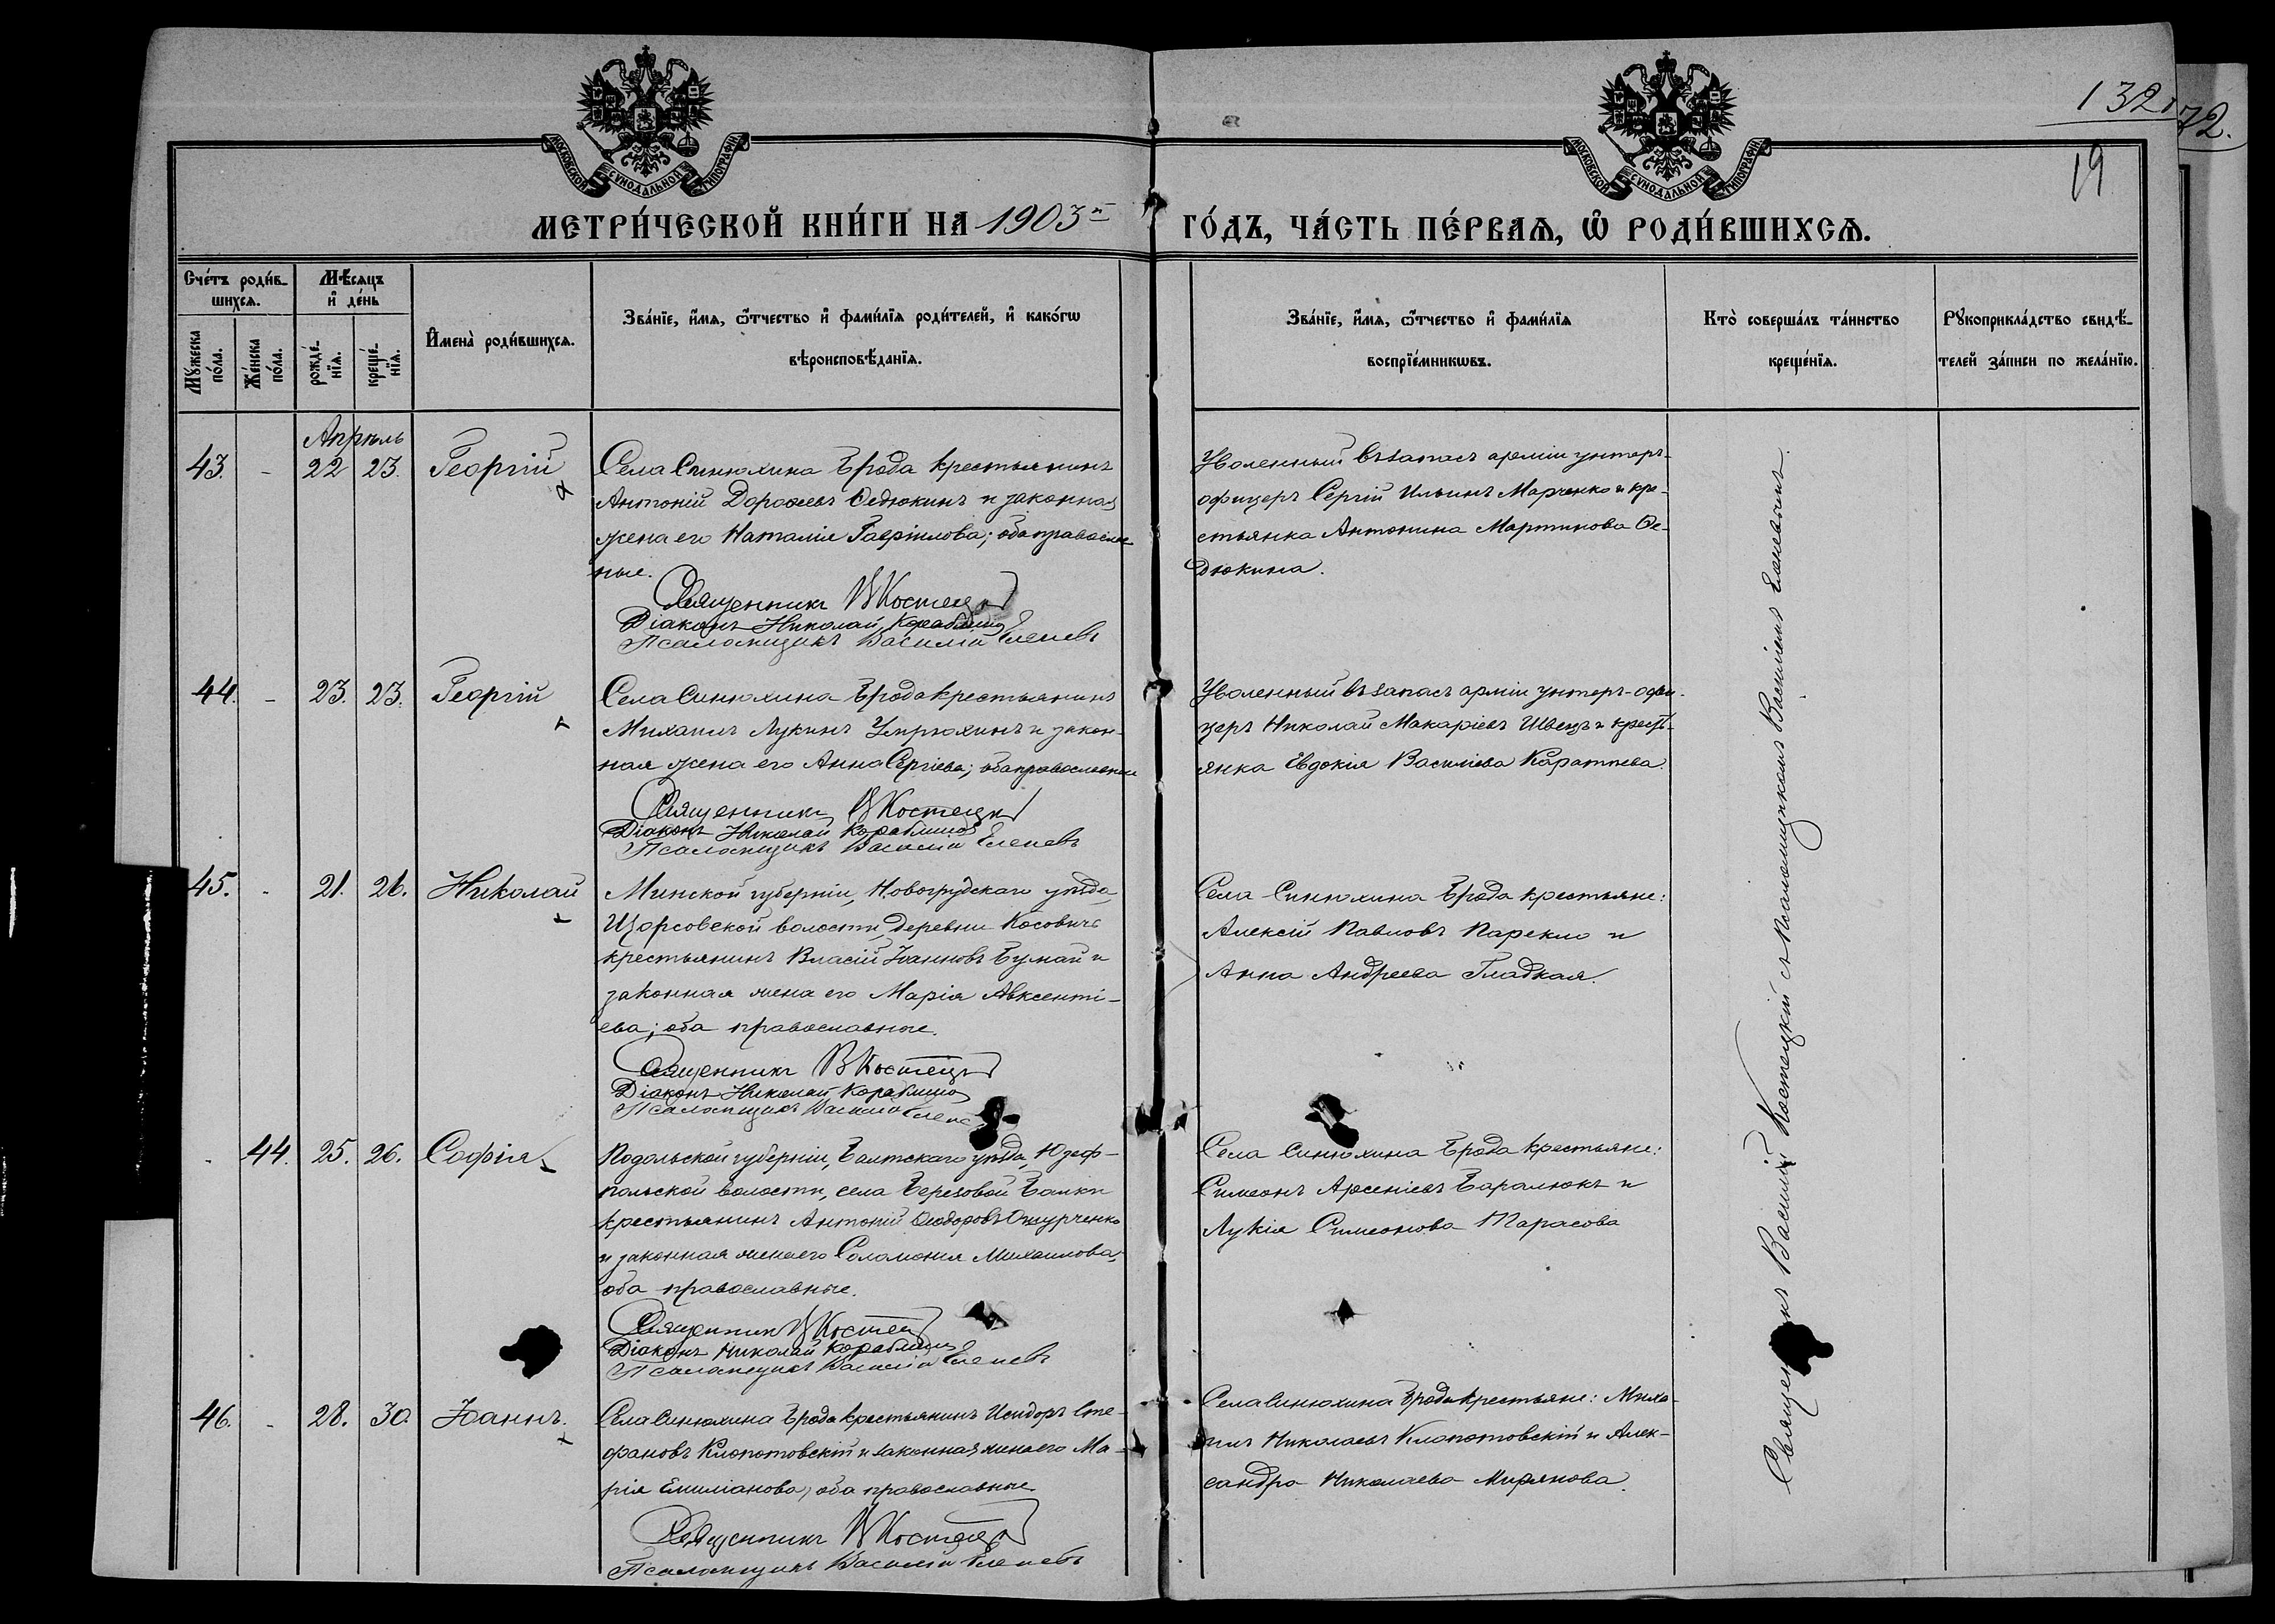 132
72.
19
МОСКОВСКОЙ СѴНОДАЛЬНОЙ ТИПОГРАФІИ
МОСКОВСКОЙ СѴНОДАЛЬНОЙ ТИПОГРАФІИ
МЕТРИ́ЧЕСКОЙ КНИ́ГИ НА 1903й ГО́ДЪ, ЧА́СТЬ ПЕ́РВАѦ, Ѡ҆ РОДИ́ВШИХСѦ.
Сче́тъ роди́в-
шихсѧ.
Мѣ́сѧцъ
и҆ де́нь
Мꙋ́жеска
по́ла.
Же́нска
по́ла.
рожде́-
нїѧ.
креще́-
нїѧ.
И҆мена̀ роди́вшихсѧ.
Зва́нїе, и҆́мѧ, ѻ҆́тчество и҆ фами́лїѧ роди́телей, и҆ како́гѡ
вѣроисповѣ́данїѧ.
Зва́нїе, и҆́мѧ, ѻ҆́тчество и҆ фами́лїѧ
воспрїе́мникѡвъ.
Кто̀ соверша́лъ та́инство
креще́нїѧ.
Рꙋкоприкла́дство свидѣ́-
телей за́писи по жела́нїю.
Апрѣль
43. - 22 23. Георгій
Села Синюхина Брода крестьянинъ
Антоній Дороѳеевъ Ѳедюкинъ и законная
жена его Наталія Гавріилова; оба православ
ные.
Священникъ В Костецкій
Діаконъ Николай Кораблиновъ
Псаломщикъ Василій Еленевъ
Уволенный въ запасъ арміи унтеръ-
офицеръ Сергій Ильинъ Марченко и кре-
стьянка Антонина Мартинова Ѳе-
дюкина.
44. - 23. 23. Георгій
Села Синюхина Брода крестьянинъ
Михаилъ Лукинъ Упрюхинъ и закон-
ная жена его Анна Сергіева; оба православные
Священникъ В Костецкій
Діаконъ Николай Кораблиновъ
Псаломщикъ Василій Еленевъ
Уволенный въ запасъ арміи унтеръ-офи-
церъ Николай Макаріевъ Швецъ и крест-
янка Евдокія Василіева Каратнева.
45. - 21. 26. Николай
Минской губерніи, Новогрудскаго уѣзда,
Щорсовской волости, деревни Косовичъ
крестьянинъ Власій Іоанновъ Бумай и
законная жена его Марія Авксенті-
ева; оба православные.
Священникъ В Костецкій
Діаконъ Николай Кораблиновъ
Псаломщикъ Василій Елене
Села Синюхина Брода крестьяне:
Алексій Павловъ Парекло и
Анна Андреева Гладкая.
- 44. 25. 26. Софія
Подольской губерніи, Балтскаго уѣзда, Юзеф-
польской волости, села Березовой Балки
крестьянинъ Антоній Ѳеодоровъ Ошурченко
и законная жена его Соломонія Михаилова,
оба православные.
Священникъ В Костец
Діаконъ Николай Кораблиновъ
Псаломщикъ Василій Еленевъ
Села Синюхина Брода крестьяне:
Симеонъ Арсеніевъ Баралюкъ и
Лукія Симеонова Тарасова
46. - 28. 30. Іоаннъ.
Села Синюхина Брода крестьянинъ Исидоръ Сте-
фановъ Клопотовскій и законная жена его Ма-
рія Емиліанова, оба православные
Священникъ В Костецкій
Псаломщикъ Василій Еленевъ
Села Синюхина Брода крестьяне: Миха-
илъ Николаевъ Клопотовскій и Алек-
сандра Николаева Мирянова.
Священникъ Василій Костецкій съ псаломщикомъ Василіемъ Еленевымъ.